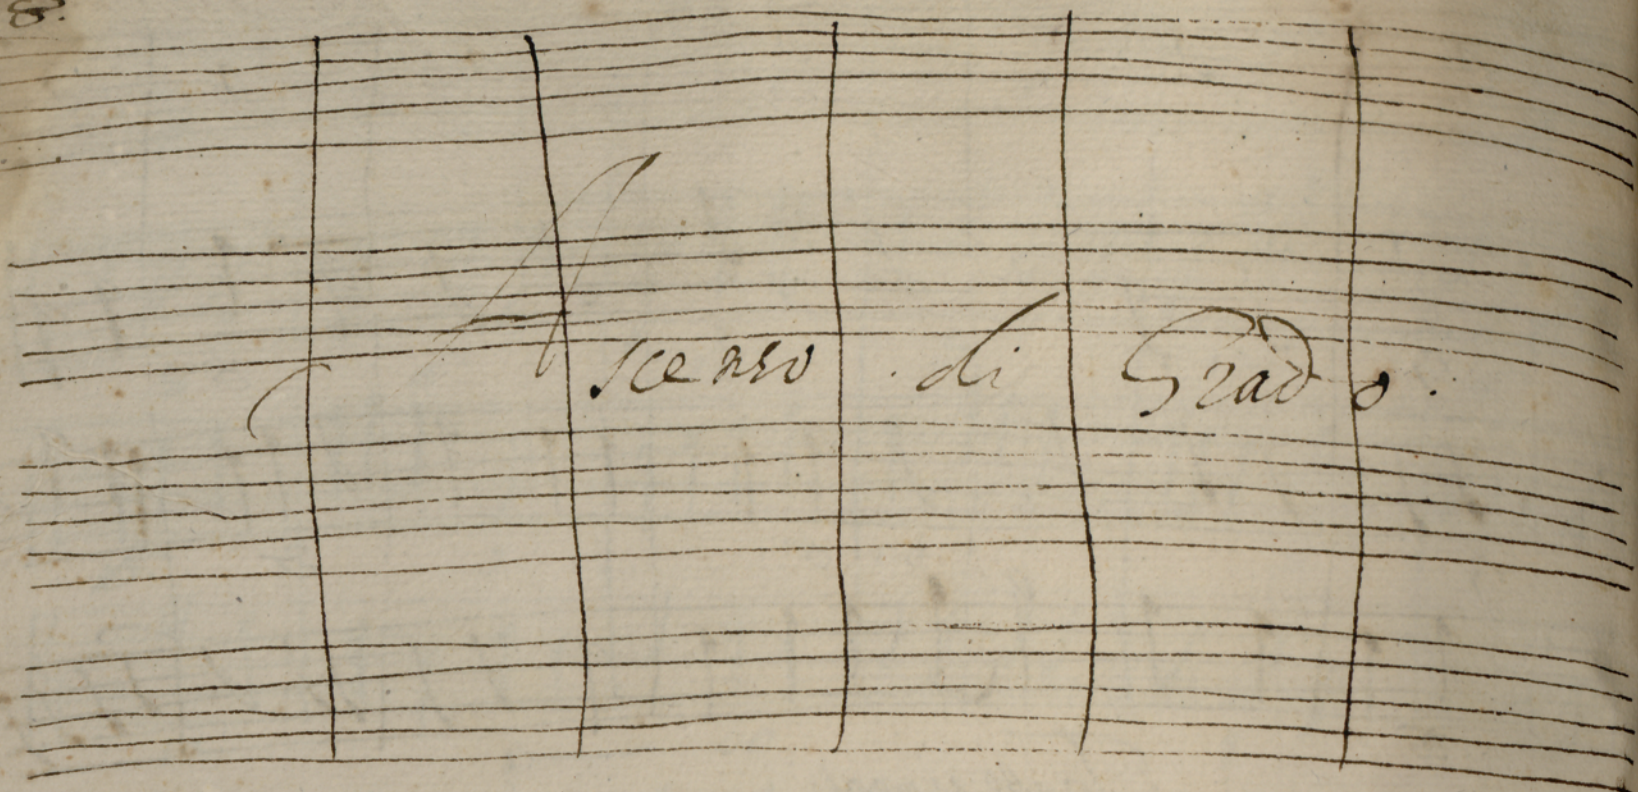 8.
Ascenso di Grado.